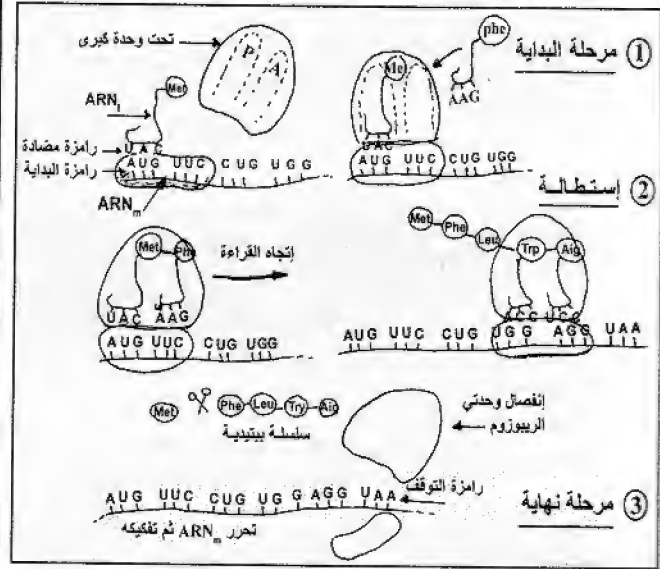 ① مرحلة البداية
تحت وحدة كبرى
P A
Met
ARNt
رامزة مضادة
UAC
رامزة البداية
AUG UUC CUG UGG
ARNm
phe
AAG
Me
UAC
AUG UUC CUG UGG
② إستطالة
إتجاه القراءة
Met Phe
UAC AAG
AUG UUC CUG UGG
Met Phe Leu Trp Aig
ACC UCC
AUG UUC CUG UGG AGG UAA
Met Phe Leu Try Aig
سلسلة ببتيدية
إنفصال وحدتي
الريبوزوم
③ مرحلة نهاية
رامزة التوقف
AUG UUC CUG UG G AGG UAA
تحرر ARNm ثم تفكيكه